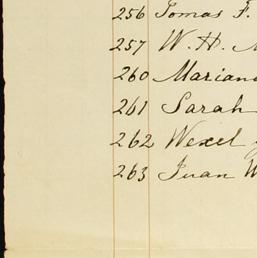 256 Tomas F.
257 W. H.
260 Mariano
261 Sarah
262 Wexel
263 Juan W